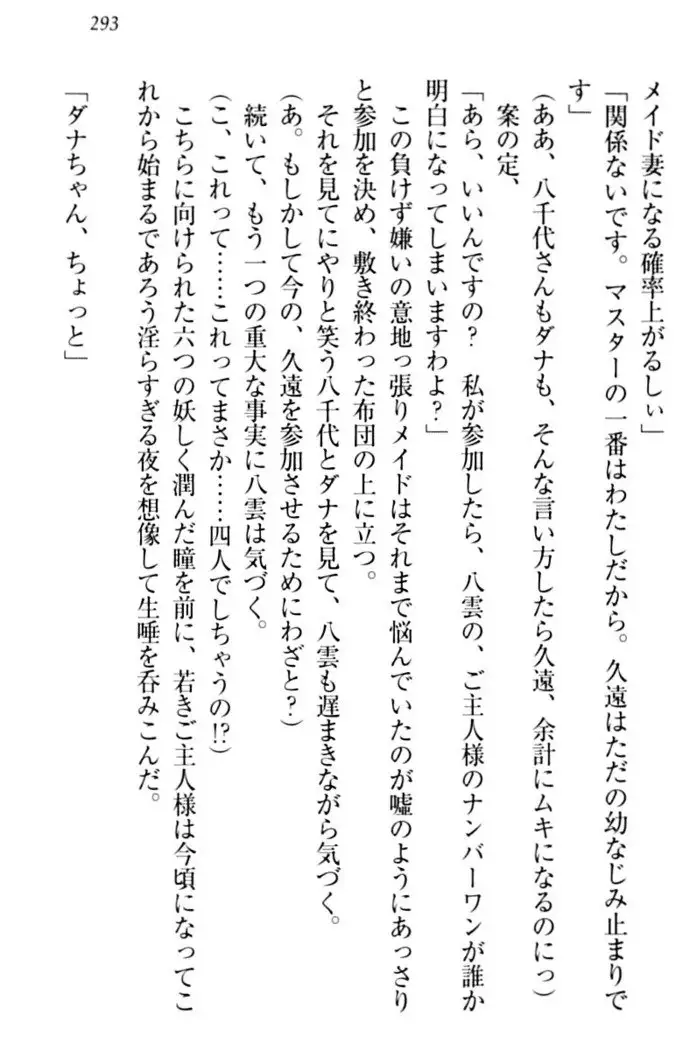 293
メイド妻になる確率上がるしぃ」
「関係ないです。マスターの一番はわたしだから。久遠はただの幼なじみ止まりで
す」
（ああ、八千代さんもダナも、そんな言い方したら久遠、余計にムキになるのにっ）
案の定、
「あら、いいんですの？　私が参加したら、八雲の、ご主人様のナンバーワンが誰か
明白になってしまいますわよ？」
この負けず嫌いの意地っ張りメイドはそれまで悩んでいたのが嘘のようにあっさり
と参加を決め、敷き終わった布団の上に立つ。
それを見てにやりと笑う八千代とダナを見て、八雲も遅まきながら気づく。
（あ。もしかして今の、久遠を参加させるためにわざと？）
続いて、もう一つの重大な事実に八雲は気づく。
（こ、これって……これってまさか……四人でしちゃうの!?）
こちらに向けられた六つの妖しく潤んだ瞳を前に、若きご主人様は今頃になってこ
れから始まるであろう淫らすぎる夜を想像して生唾を呑みこんだ。
「ダナちゃん、ちょっと」